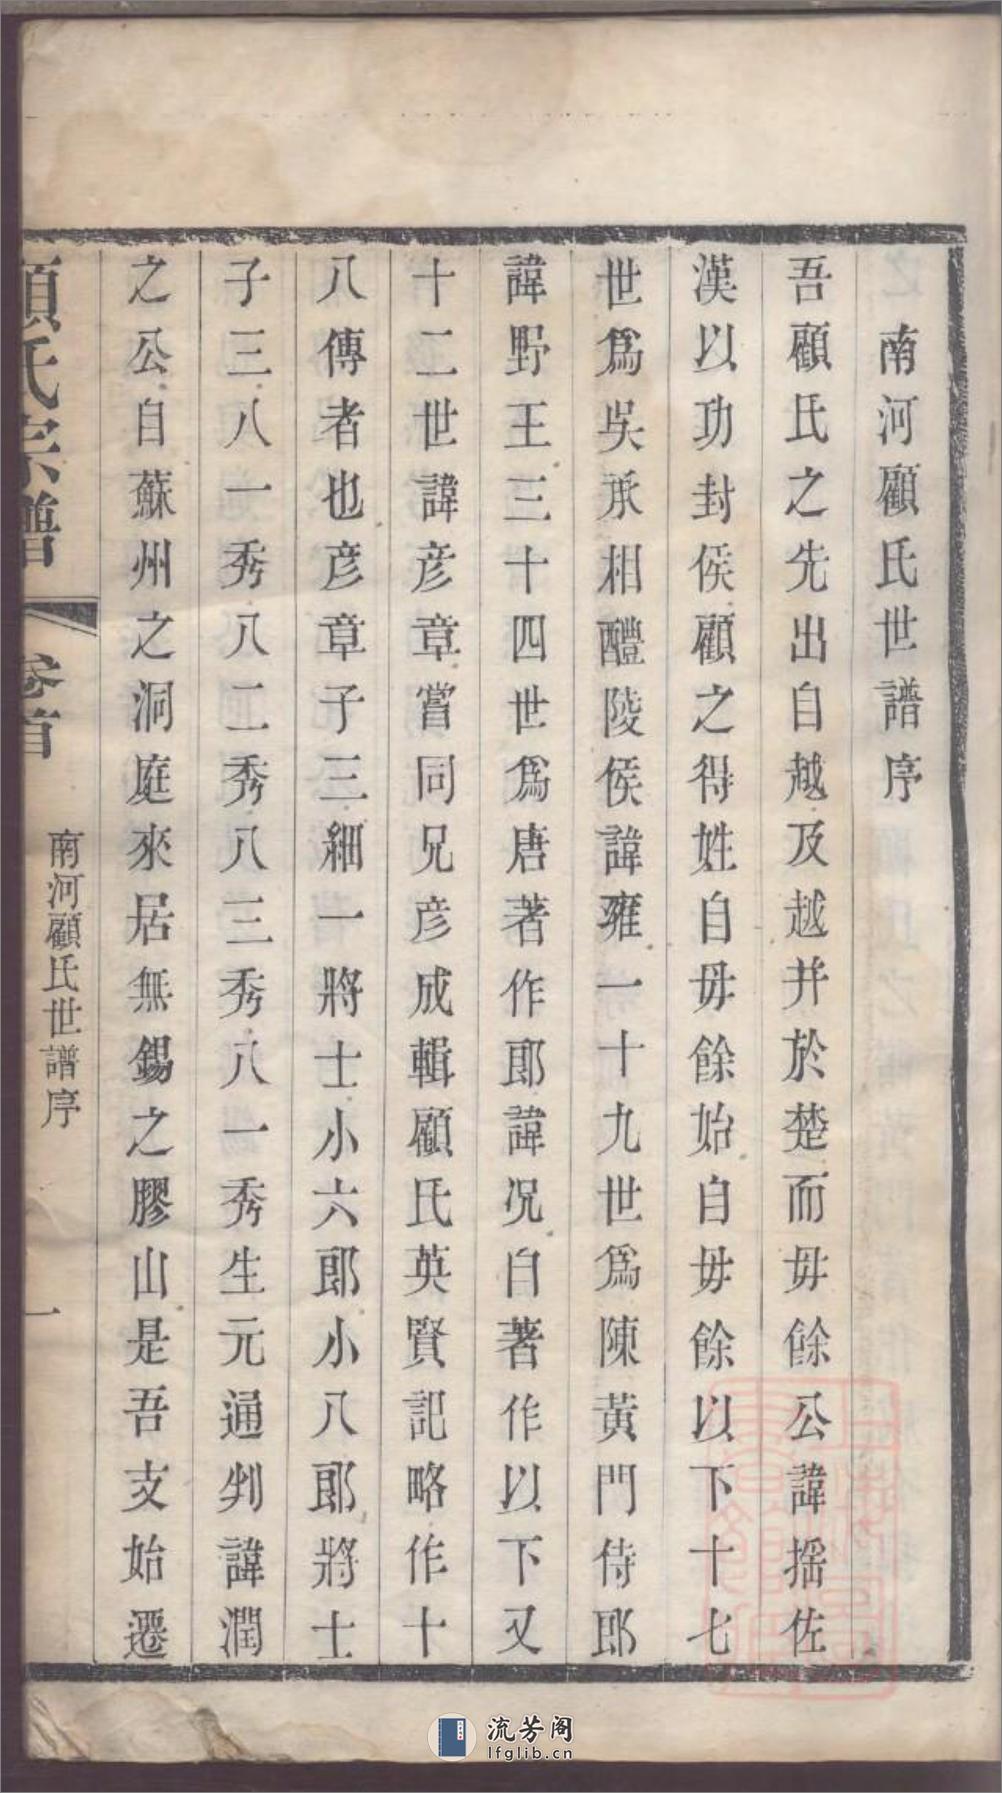 南河顧氏世譜序
吾顧氏之先出自越及越并於楚而毋餘公諱揺佐
漢以功封侯顧之得姓自毋餘始自毋餘以下十七
世爲吳丞相醴陵侯諱雍一十九世爲陳黃門侍郎
諱野王三十四世爲唐著作郎諱况自著作以下又
十二世諱彦章嘗同兄彦成輯顧氏英賢記略作十
八傳者也彦章子三細一將士小六郎小八郎將士
子三八一秀八二秀八三秀八一秀生元通判諱潤
之公自蘇州之洞庭來居無錫之膠山是吾支始遷
顧氏宗譜 卷首 南河顧氏世譜序 一
流芳阁
lfglib.cn